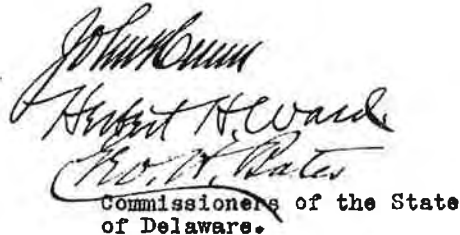 Herbert H. Ward.
Geo. H. Bates
Commissioners of the State
of Delaware.